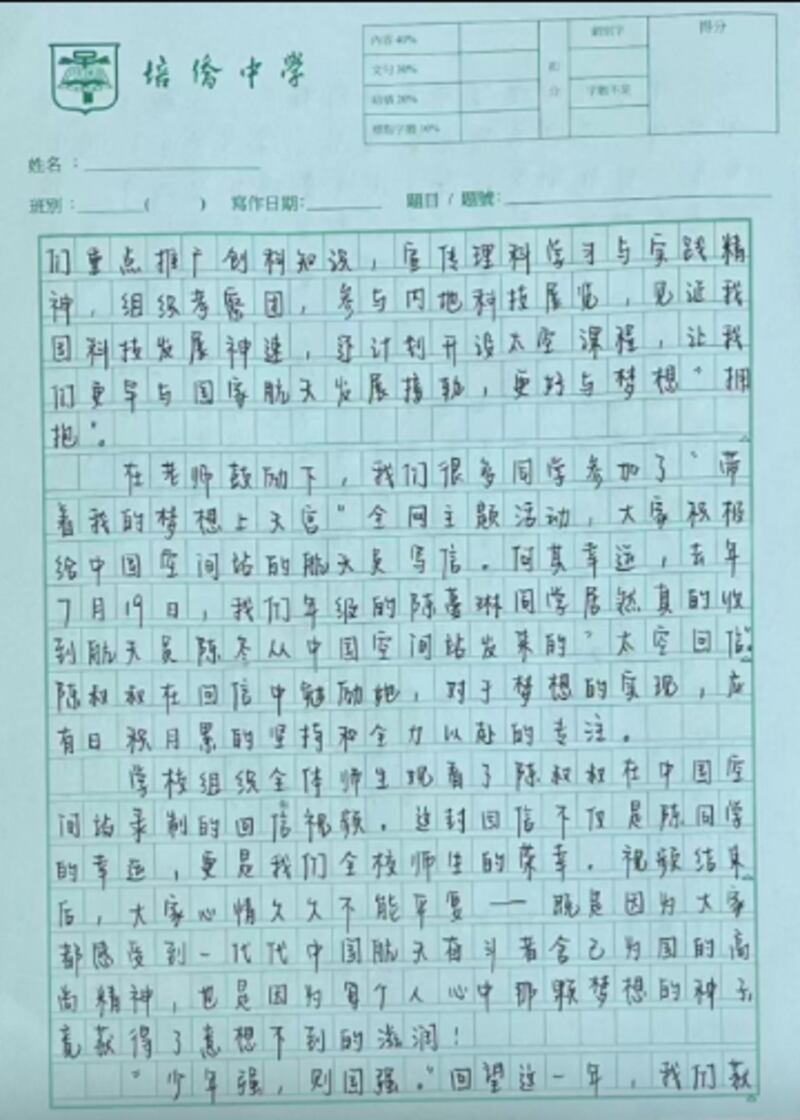 培僑中學
內容40%
文句30%
結構20%
標點字體10%
扣分
錯別字
字數不足
得分
姓名：
班別：　（　） 寫作日期： 題目／題號：
们重点推广创科知识，宣传理科学习与实践精
神，组织考察团，参与内地科技展览，见证我
国科技发展神速，还计划开设太空课程，让我
们更早与国家航天发展接轨，更好与梦想“拥
抱”。
在老师鼓励下，我们很多同学参加了“带
着我的梦想上天宫”全网主题活动，大家积极
给中国空间站的航天员写信。何其幸运，去年
7月19日，我们年级的陈蔓琳同学居然真的收
到航天员陈冬从中国空间站发来的“太空回信”。
陈叔叔在回信中勉励她，对于梦想的实现，应
有日积月累的坚持和全力以赴的专注。
学校组织全体师生观看了陈叔叔在中国空
间站录制的回信视频。这封回信不仅是陈同学
的幸运，更是我们全校师生的荣幸。视频结束
后，大家心情久久不能平复——既是因为大家
都感受到一代代中国航天奋斗者舍己为国的高
尚精神，也是因为每个人心中那颗梦想的种子
竟获得了意想不到的滋润！
“少年强，则国强。”回望这一年，我们获